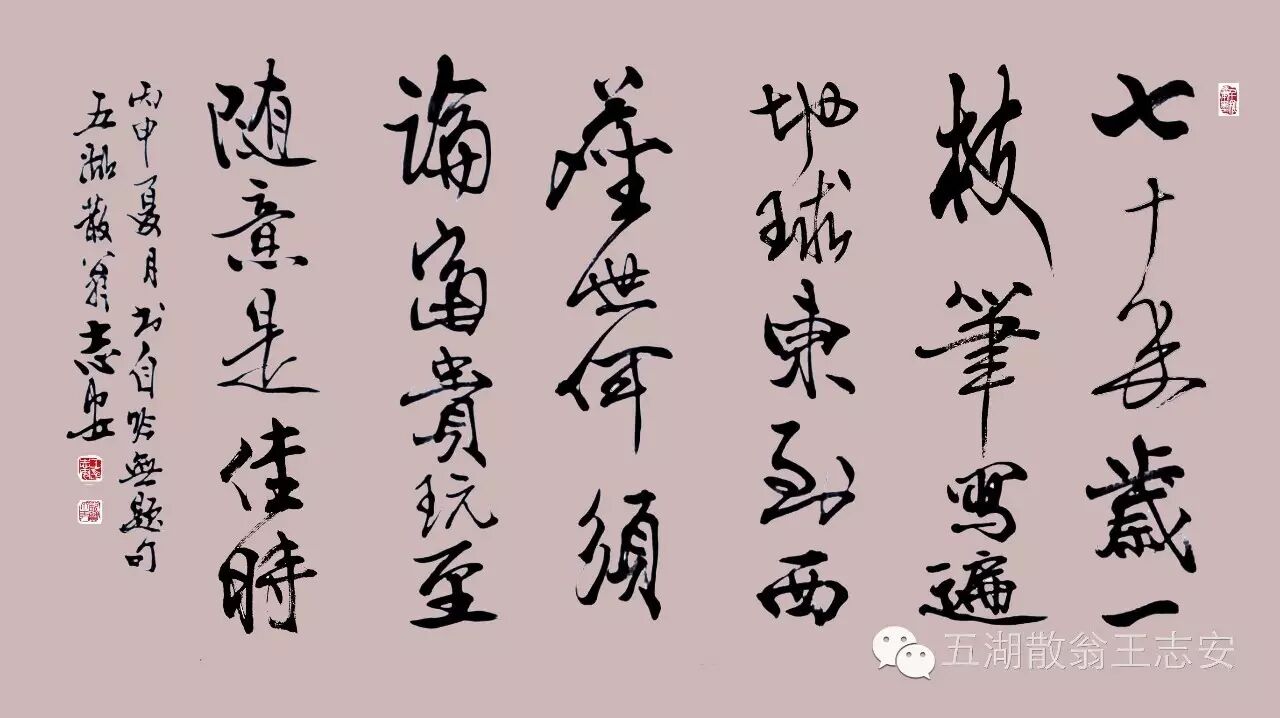 七十年歲一
枝筆寫遍
地球東到西
蓋世何須
論富貴玩至
随意是佳時
丙申夏月书自吟無題句
五湖散翁志安
五湖散翁王志安